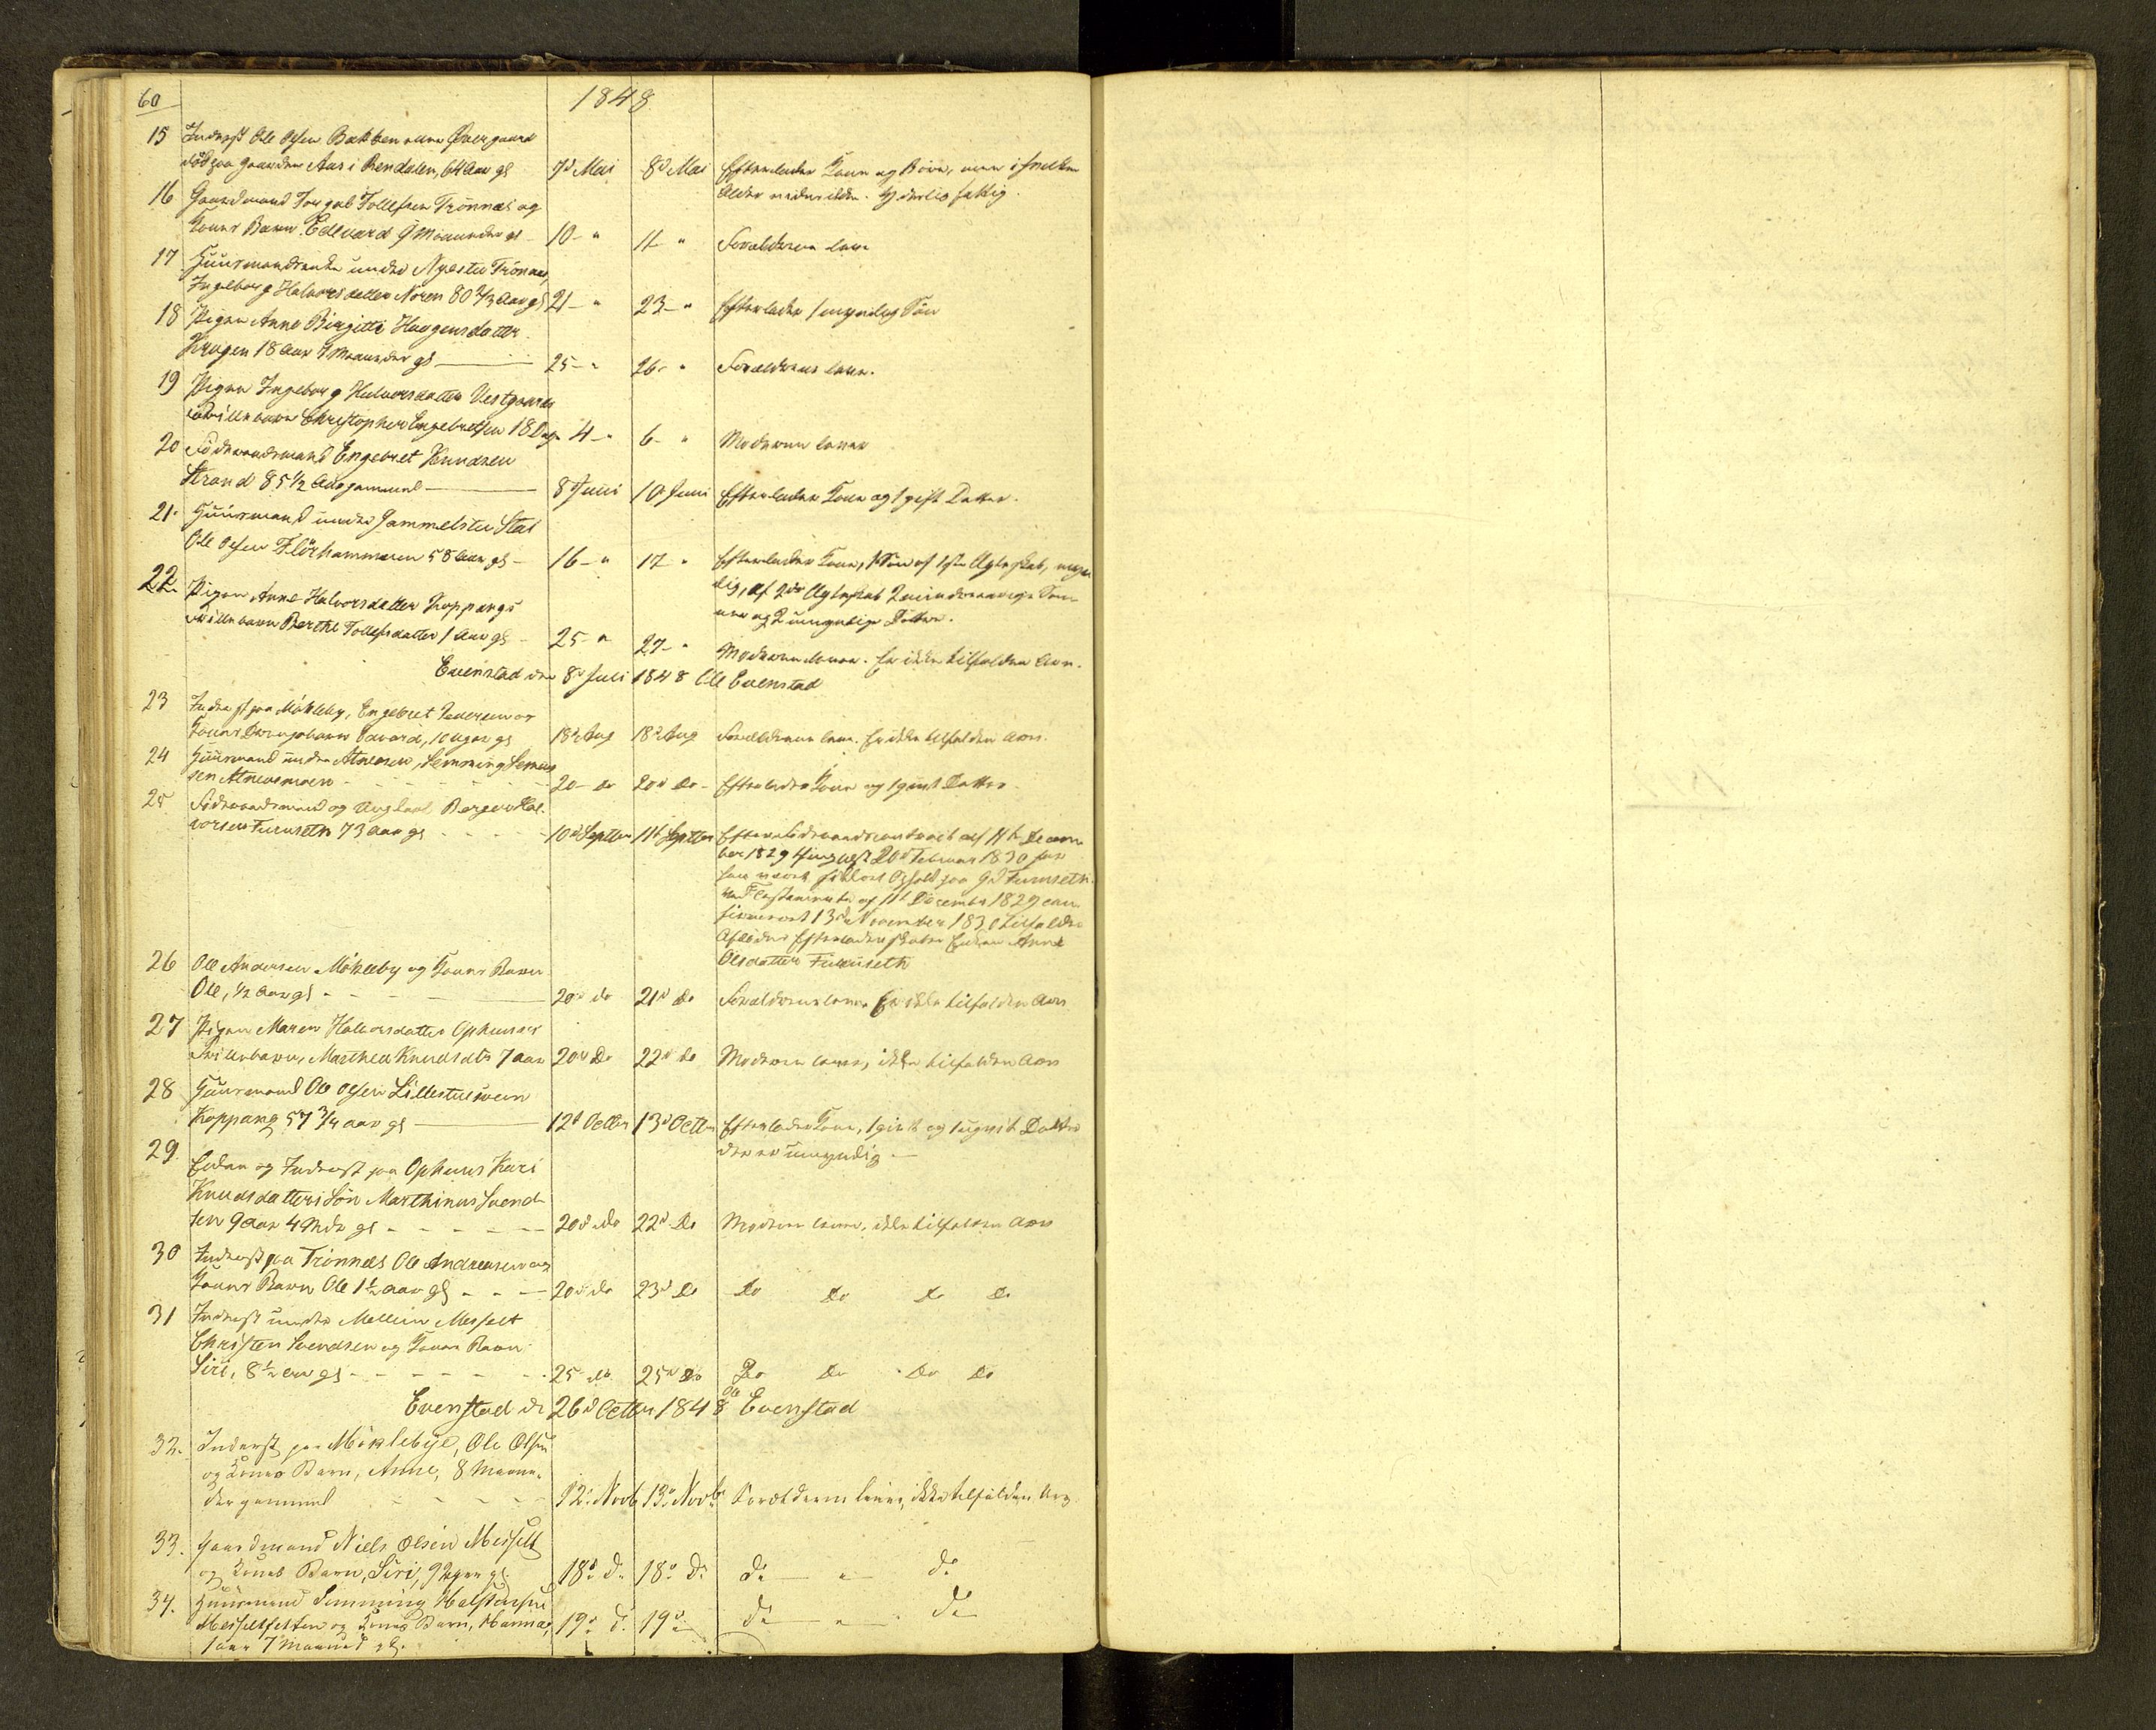 60
1848
15 Inderst Ole Olsen Bakken eller Øvergaard
død paa Gaarden Aas i Rendalen, 64 Aar gl 7d Mai 8d Mai Efterlader Kone og Børn, men i hvilken
Alder vides ikke. Yderlig fattig.
16 Gaardmand Tollefsen Trönnæs og
Kones Barn Edevard 9 Maaneder gl 10 - " 11 - " Forældrene leve
17 Huusmandsenke under Nyestu Trönnæs,
Ingeborg Halvorsdatter Noren 80 2/3 Aar gl 21 - " 23 - " Efterlader 1 myndig Søn
18 Pigen Anne Birgitte Haagensdatter
Krogen 18 Aar 7 Maaneder gl 25 - " 26 - " Forældrene leve.
19 Pigen Ingeborg Halvorsdatter Vestgaards
uægte Barn Christopher Engebretsen 18 Dage 4 - " 6 - " Moderen lever
20 Föderaadsmand Engebret Knudsen
Strand 85 1/2 Aar gammel 8 Juni 10 Juni Efterlader Kone og 1 gift Datter.
21. Huusmand under Gammelstu Stai
Ole Olsen 58 Aar gl - 16 - " 17 - " Efterlader Kone, 1 Søn af 1ste Ægteskab, myn-
dig, af 2det Ægteskab 2 mindreaarige Søn-
ner og 2 umyndige Døttre.
22. Pigen Anne Halvorsdatter Koppangs
Barn Berthe Tollefsdatter 1 Aar gl - 25 - " 27 - " Moderen lever. Er ikke tilfalden Arv.
Evenstad den 8d Juli 1848 Ole Evenstad
23 Inderst paa Mökleby, Engebret Pedersen og
Kones Drengebarn Edvard, 10 Uger gl 18d Aug 18d Aug Forældrene leve. Er ikke tilfalden Arv.
24 Huusmand under Atneosen, Semming Semmingsen
Atneosmoen - 20 - do 20d Do - Efterlader Kone og 1 gift Datter.
25 Föderaadsmand og Ungkarl Berger Hal-
vorsen Furuseth 73 aar gl - 10d Septbr 11d Septbr Efter Föderaadscontract af 11te Decem-
ber 1829 thinglyst 20d Februar 1830 har
han nydt sit Ophold paa Gd Furuseth.
Ved Testamente af 11te December 1829 con-
firmeret 13de November 1830 tilfalder
Afdødes Efterladenskaber Enken Anne
Olsdatter Furuseth
26 Ole Andersen Mökleby og Kones Barn
Ole, 1/2 Aar gl - 20d do 21d do Forældrene leve. Er ikke tilfalden Arv
27 Pigen Maren Halvorsdatter Ophuses
Barn, Marthea Knudsdtr 7 aar 20d Do 22d do Moderen lever, ikke tilfalden Arv
28 Huusmand Ole Olsen Lillestuen
Koppang 57 3/4 aar gl 12d Octbr 13d Octbr Efterlader Kone, 1 gift og 1 ugivt Datter
der er umyndig -
29. Enken og Inderst paa Ophuus Kari
Knudsdatters Søn Marthinus Svend-
sen 9 aar 4 Mdr gl - 20d do 22d Do Moderen lever, ikke tilfalden Arv
30 Inderst paa Trönnæs Ole Andreasen og
Kones Barn Ole 1 1/2 aar gl - 20d do 23d Do Do Do Do Do
31 Inderst under Mellem Messelt
Christen Svendsen og Kones Barn
Siri, 8 1/2 aar gl - 25 do 25d Do Do Do Do Do
Evenstad d. 26d Octbr 1848 Ole Evenstad
32. Inderst paa Möklebye, Ole Olsen
og Kones Barn, Anne, 8 Maane-
der gammel 12. Novb 13. Novb. Forældrene leve, ikke tilfalden Arv.
33. Gaardmand Niels Olsen Messelt
og Kones Barn, Siri, 9 Uger gl. 18d Do 18d Do do " do
34. Huusmand Simming Halstensen
og Kones Barn, 19d d. 19d do " do
1 aar 7 Maaned gl.